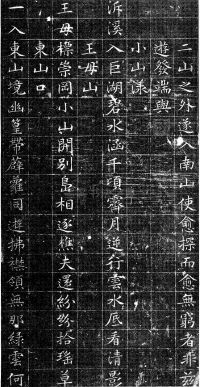 二山之外遂入南山使愈探而愈無窮者非茲
遊發端與
小山漾
泝溪入巨湖碧水涵千頃霽月逆行雲水底看清影
王母山
王母襟崇岡小山開別島相逐樵夫還紛紛拾瑤草
東山口
一入東山境幽篁帶薜蘿同遊拂襟領無那綠雲何